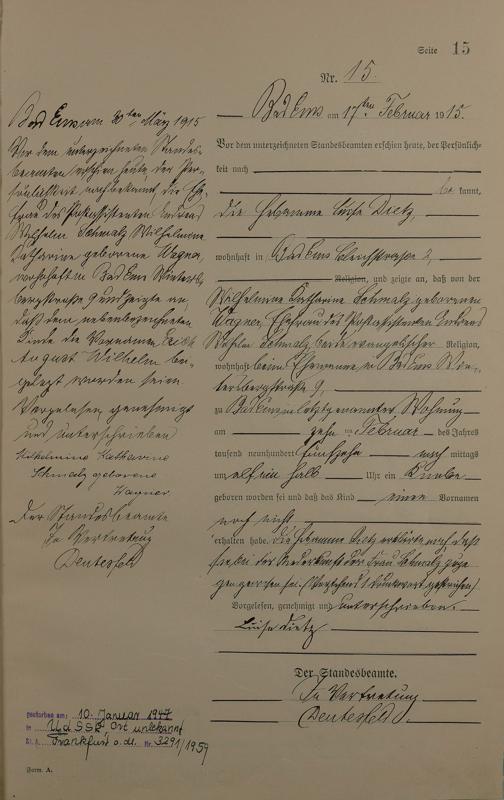 Seite 15
Nr. 15.
Bad Ems am 17ten Februar 1915.
Vor dem unterzeichneten Standesbeamten erschien heute, der Persönlich-
keit nach
be kannt,
die Hebamme Luise Dietz,
wohnhaft in Bad Ems 2,
Religion, und zeigte an, daß von der
Wilhelmine Katharine Schmalz geborenen
Wagner, Ehefrau des Postassistenten Andreas
Wilhelm Schmalz, beide evangelischer Religion,
wohnhaft beim Ehemanne in Bad Ems Win-
tersbergstraße 9,
zu Bad Ems in letztgenannter Wohnung
am zehn ten Februar des Jahres
tausend neunhundert fünfzehn nach mittags
um elf ein halb Uhr ein Knabe
geboren worden sei und daß das Kind einen Vornamen
noch nicht
erhalten habe. Die Hebamme Dietz erklärte noch daß
sie bei der Niederkunft der Frau Schmalz zuge
gen gewesen sei. (Vorstehend 1 Druckwort gestrichen)
Vorgelesen, genehmigt und unterschrieben.
Luise Dietz
Der Standesbeamte.
In Vertretung
Bad Ems am 20ten März 1915
Vor dem unterzeichneten Standes-
beamten erschien heute, der Per-
sönlichkeit nach bekannt, die Ehe-
frau des Postassistenten Andreas
Wilhelm Schmalz Wilhelmine
Katharine geborene Wagner,
wohnhaft in Bad Ems Winters-
bergstraße 9 und zeigte an,
daß dem nebenbezeichneten
Kinde die Vornamen
August Wilhelm bei-
gelegt worden seien.
Vorgelesen, genehmigt
und unterschrieben
Wilhelmine Katharine
Schmalz geborene
Wagner.
Der Standesbeamte
In Vertretung
gestorben am: 10. Januar 1947
in UdSSR, Ort unbekannt
St. A. Frankfurt o. d. Nr. 3291/1959
Form. A.